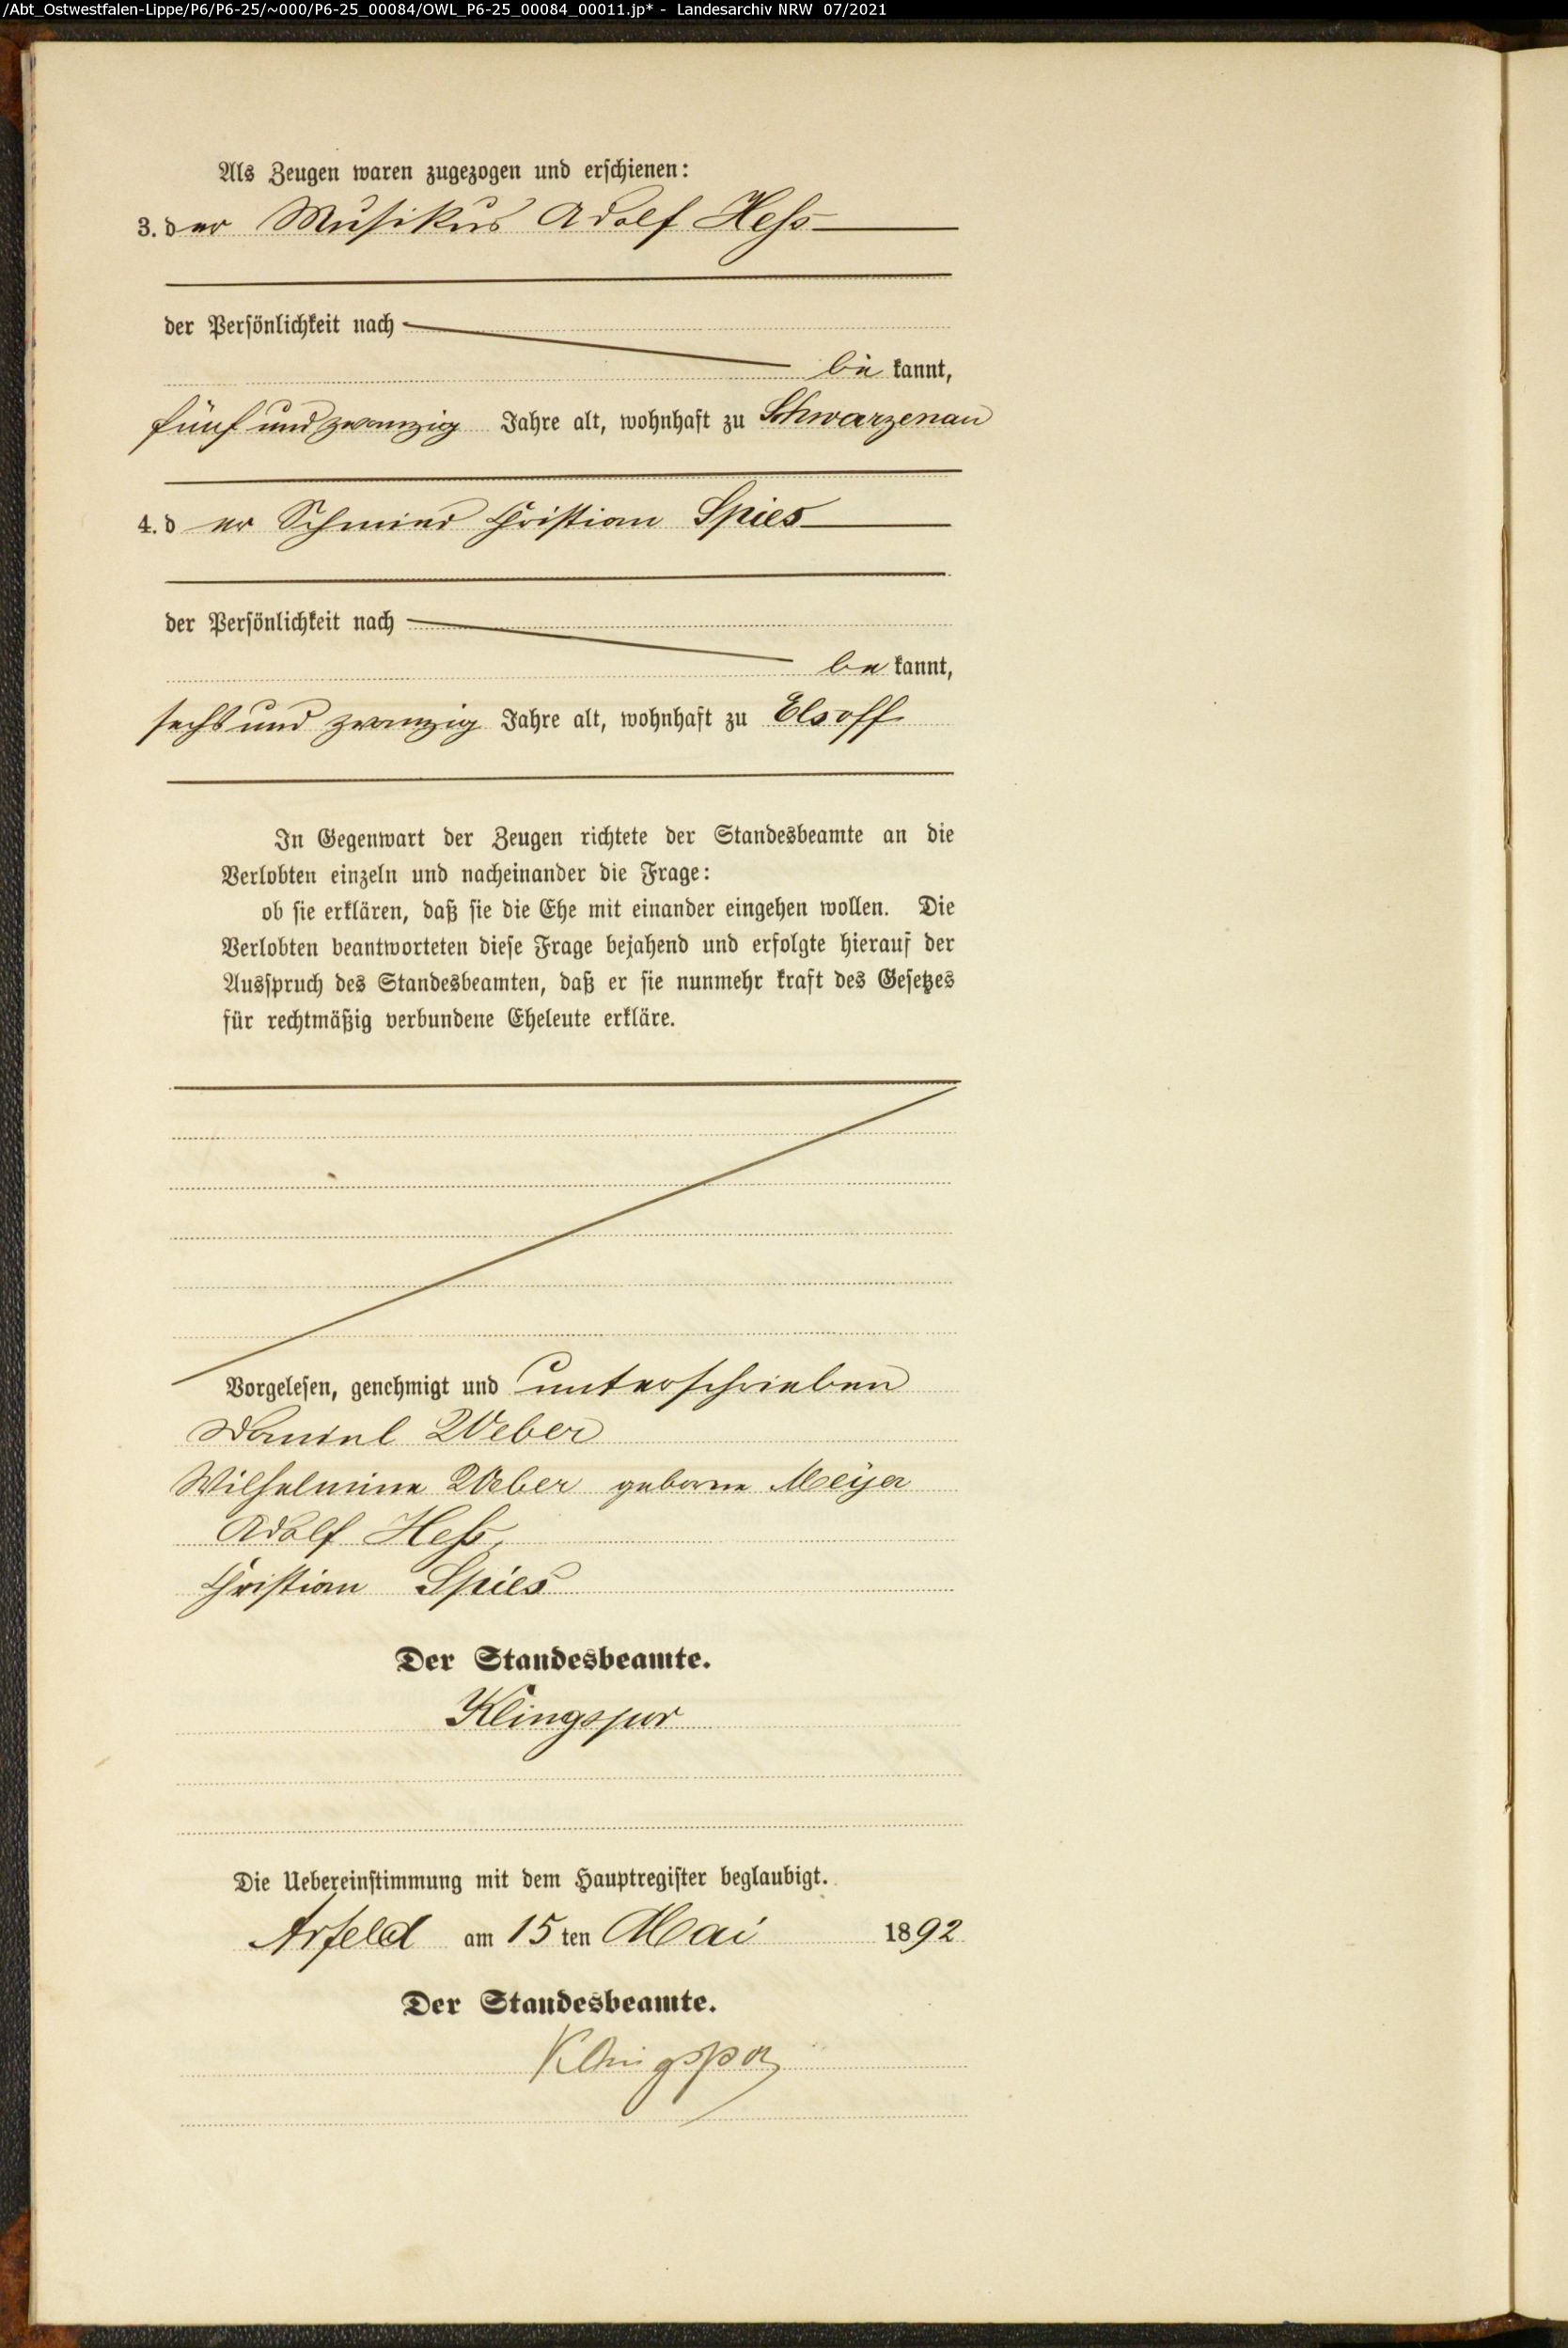 /Abt_Ostwestfalen-Lippe/P6/P6-25/~000/P6-25_00084/OWL_P6-25_00084_00011.jp* - Landesarchiv NRW 07/2021
Als Zeugen waren zugezogen und erschienen:
3. der Musikus Adolf Hess
der Persönlichkeit nach
be kannt,
fünf und zwanzig Jahre alt, wohnhaft zu Schwarzenau
4. d er Schmied Christian Spies
der Persönlichkeit nach
be kannt,
sechs und zwanzig Jahre alt, wohnhaft zu Elsoff
In Gegenwart der Zeugen richtete der Standesbeamte an die
Verlobten einzeln und nacheinander die Frage:
ob sie erklären, daß sie die Ehe mit einander eingehen wollen. Die
Verlobten beantworteten diese Frage bejahend und erfolgte hierauf der
Ausspruch des Standesbeamten, daß er sie nunmehr kraft des Gesetzes
für rechtmäßig verbundene Eheleute erkläre.
Vorgelesen, genehmigt und unterschrieben
Daniel Weber
Wilhelmine Weber geborne Meÿer
Adolf Hess,
Christian Spies
Der Standesbeamte.
Klingspor
Die Uebereinstimmung mit dem Hauptregister beglaubigt.
Arfeld am 15 ten Mai 1892
Der Standesbeamte.
Klingspor